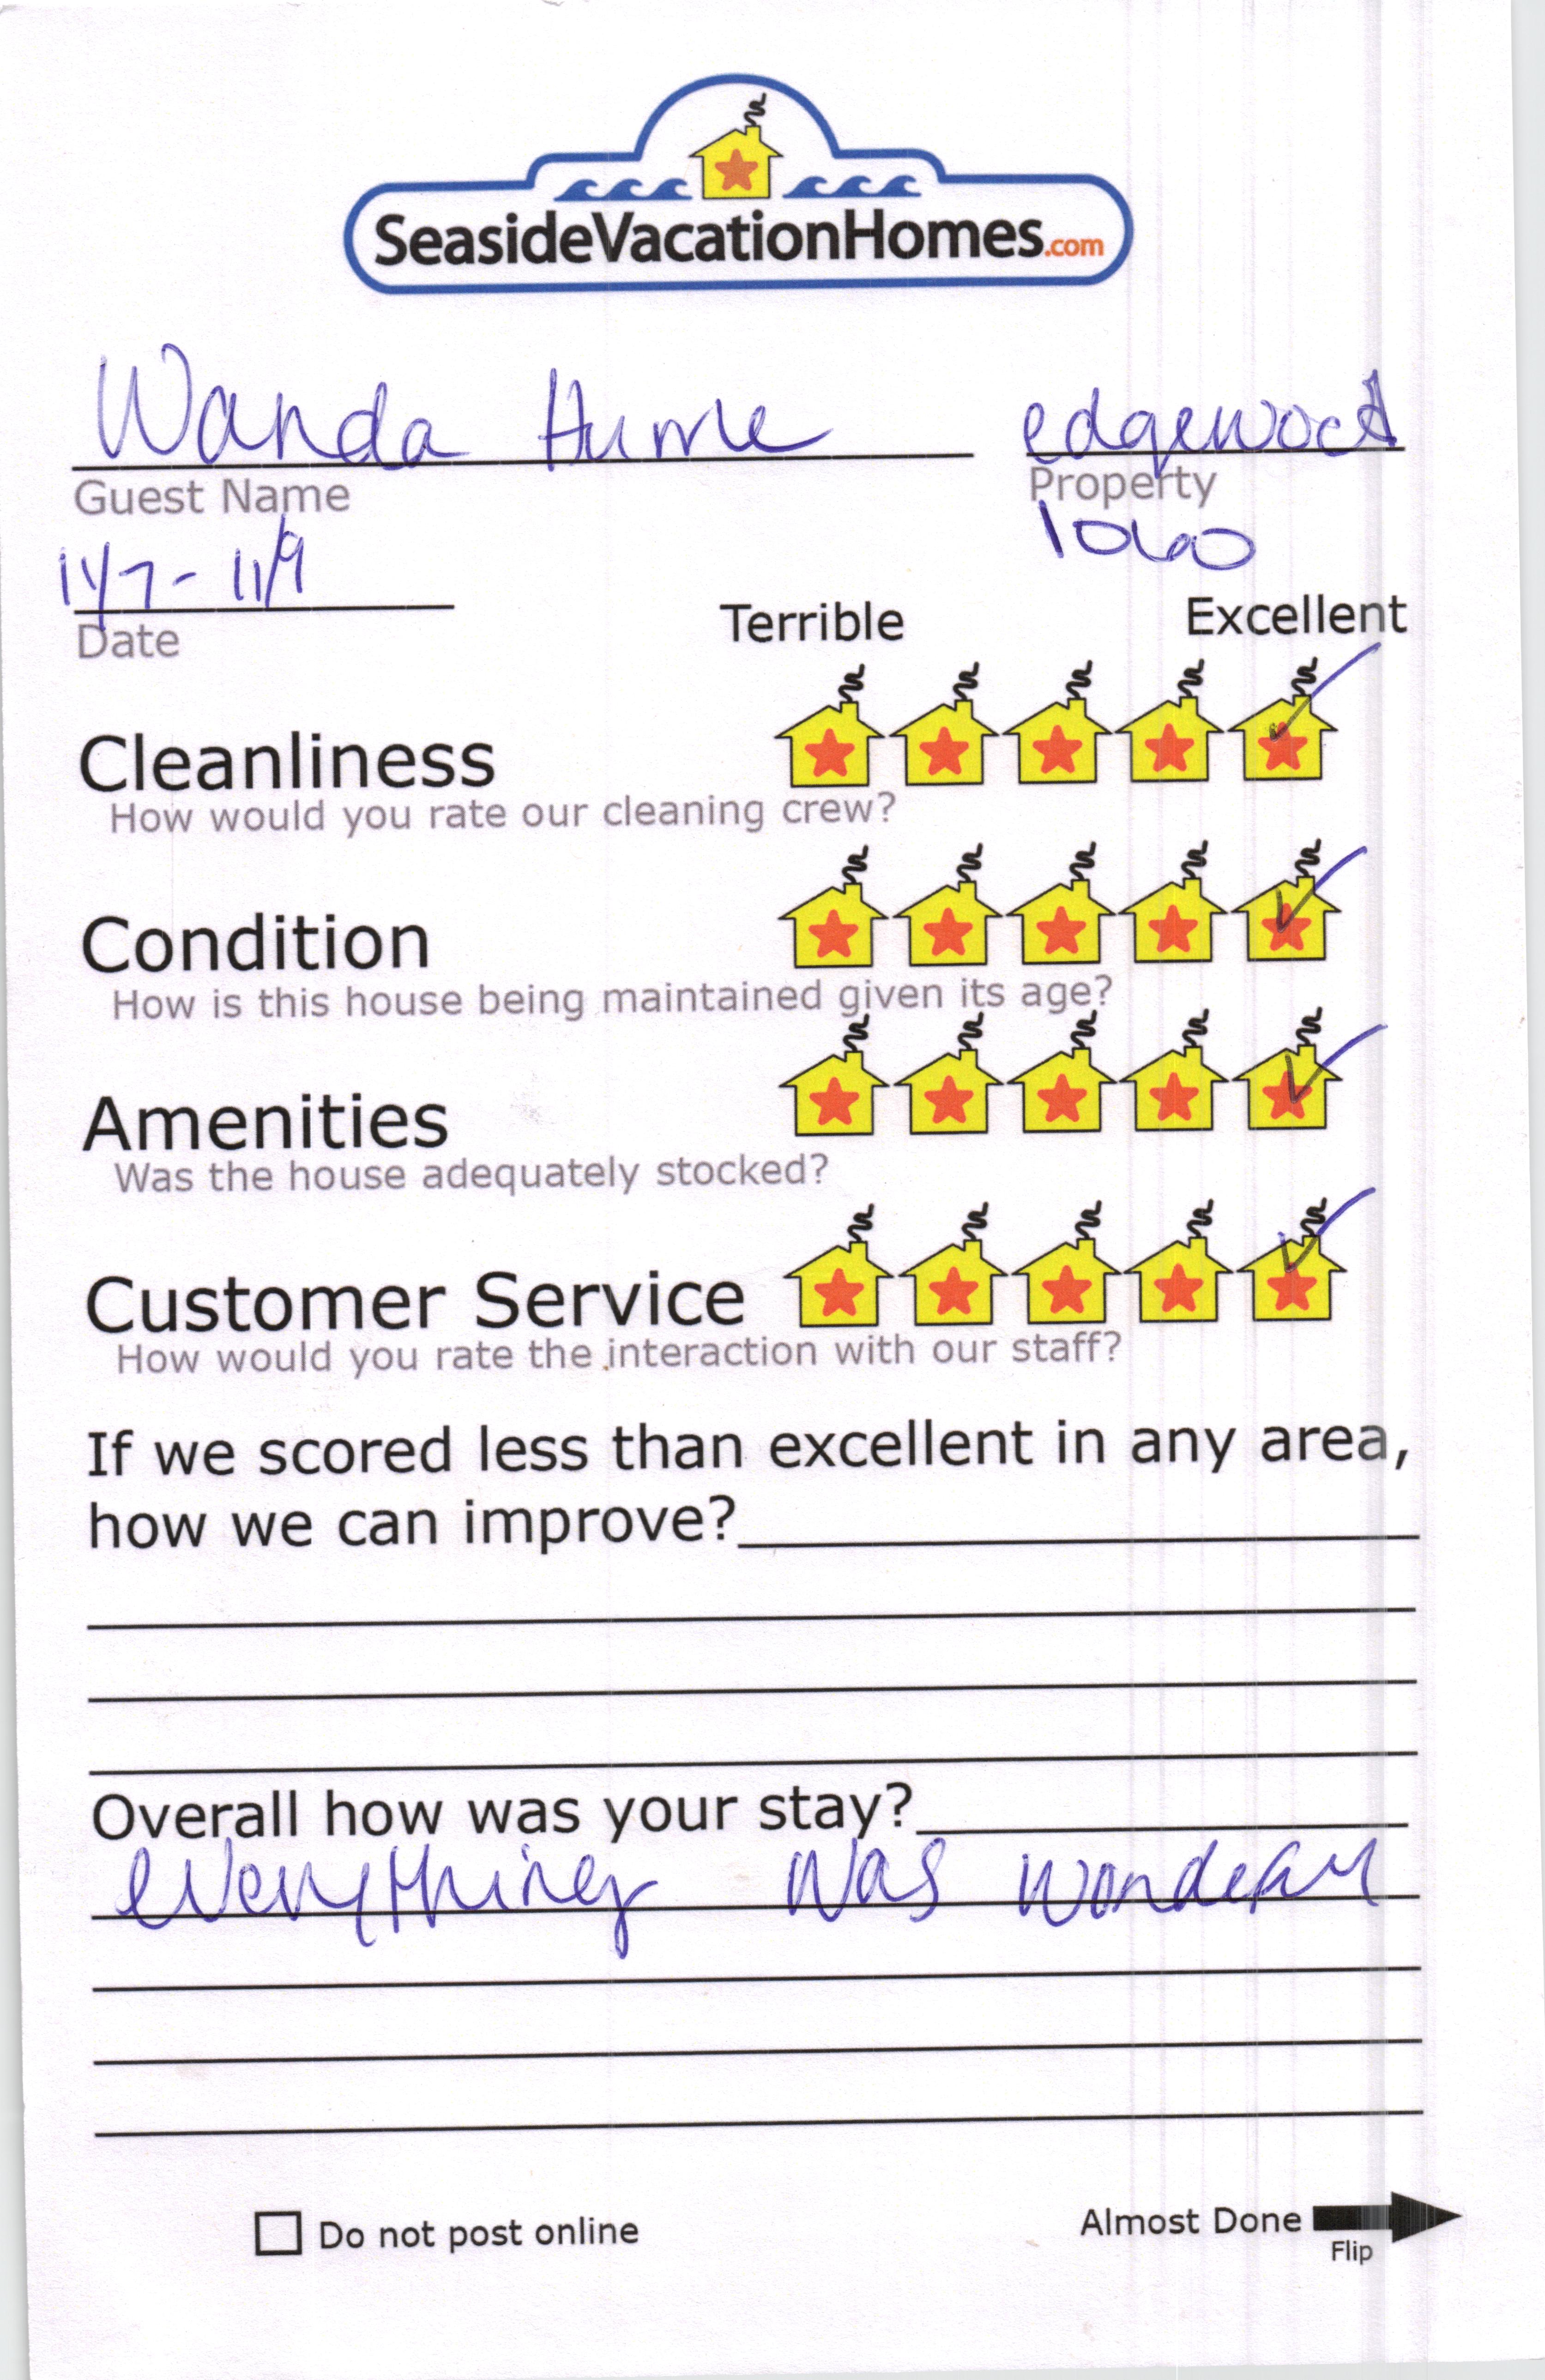 SeasideVacationHomes.com
Wanda Hume edgewood
Guest Name Property
11/7 - 11/9
Date
Terrible Excellent
Cleanliness
How would you rate our cleaning crew?
Condition
How is this house being maintained given its age?
Amenities
Was the house adequately stocked?
Customer Service
How would you rate the interaction with our staff?
If we scored less than excellent in any area,
how we can improve?
Overall how was your stay?
everything was
Do not post online
Almost Done
Flip